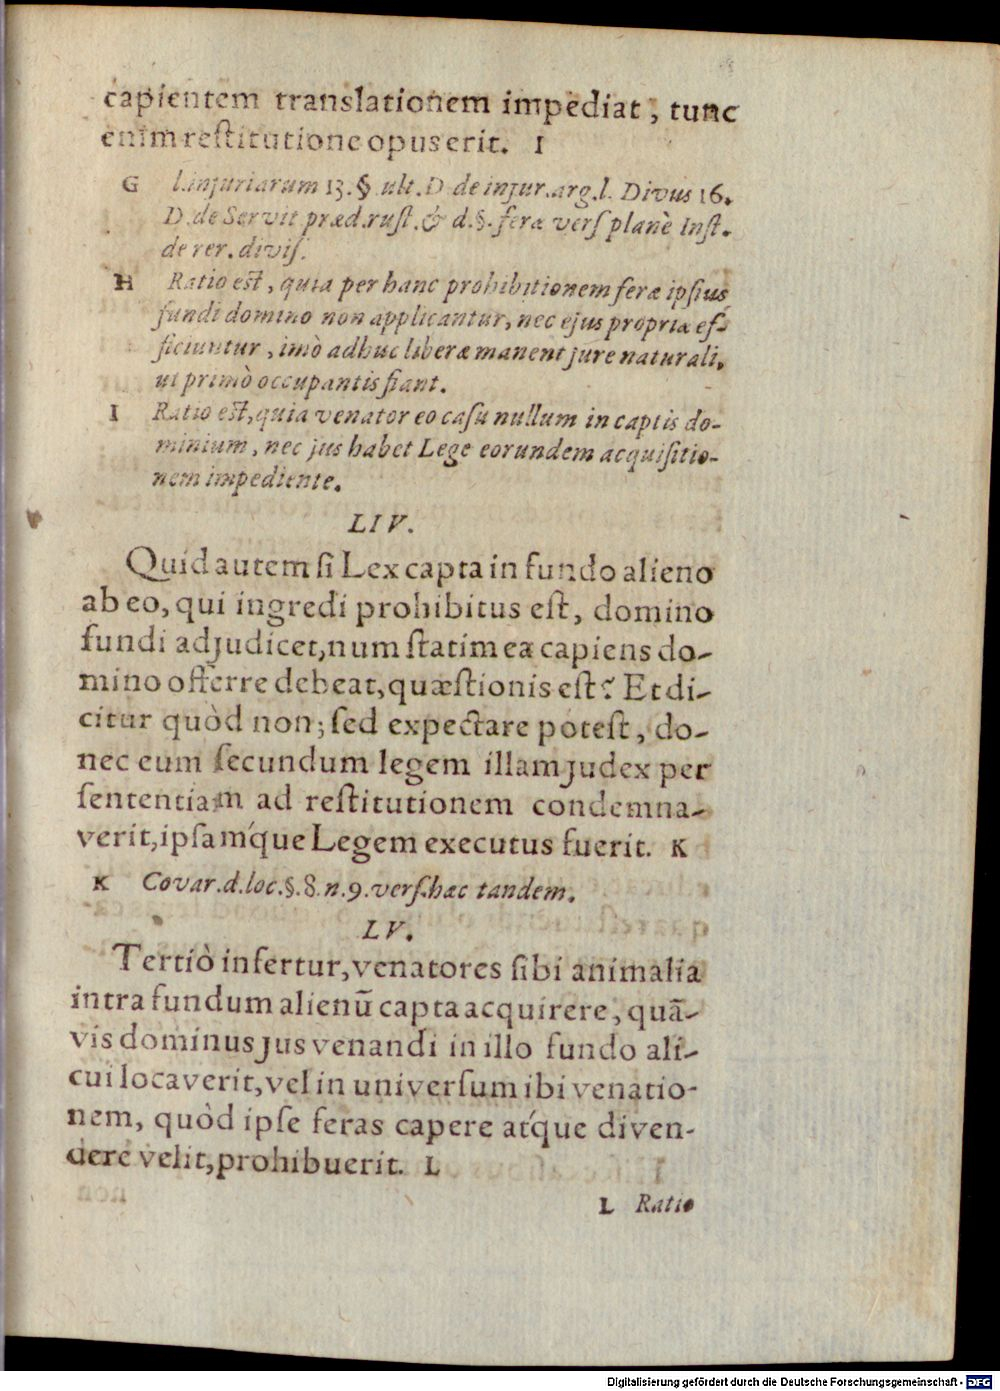 capientem translationem impediat, tunc
enim reſtitutione opus erit. I
G l. injuriarum 13. §. ult. D. de injur. arg. l. Divus 16.
D. de Servit præd. ruſt. & d. §. feræ verſ planè Inſt.
de rer. diviſ.
H Ratio eſt, quia per hanc prohibitionem feræ ipſius
fundi domino non applicantur, nec ejus propriæ ef-
ficiuntur, imò adhuc liberæ manent jure naturali,
ut primò occupantis fiant.
I Ratio eſt, quia venator eo caſu nullum in captis do-
minium, nec jus habet Lege eorundem acquiſitio-
nem impediente.
LIV.
Quid autem ſi Lex capta in fundo alieno
ab eo, qui ingredi prohibitus eſt, domino
fundi adjudicet, num ſtatim ea capiens do-
mino offerre debeat, quæſtionis eſt? Et di-
citur quòd non; ſed expectare poteſt, do-
nec eum ſecundum legem illam judex per
ſententiam ad reſtitutionem condemna-
verit, ipſaḿque Legem executus fuerit. K
K Covar. d. loc. §. 8. n. 9. verſ. hæc tandem.
LV.
Tertiò infertur, venatores ſibi animalia
intra fundum alienũ capta acquirere, quã-
vis dominus jus venandi in illo fundo ali-
cui locaverit, vel in univerſum ibi venatio-
nem, quòd ipſe feras capere at́que diven-
dere velit, prohibuerit. L
L Ratio
Digitalisierung gefördert durch die Deutsche Forschungsgemeinschaft - DFG